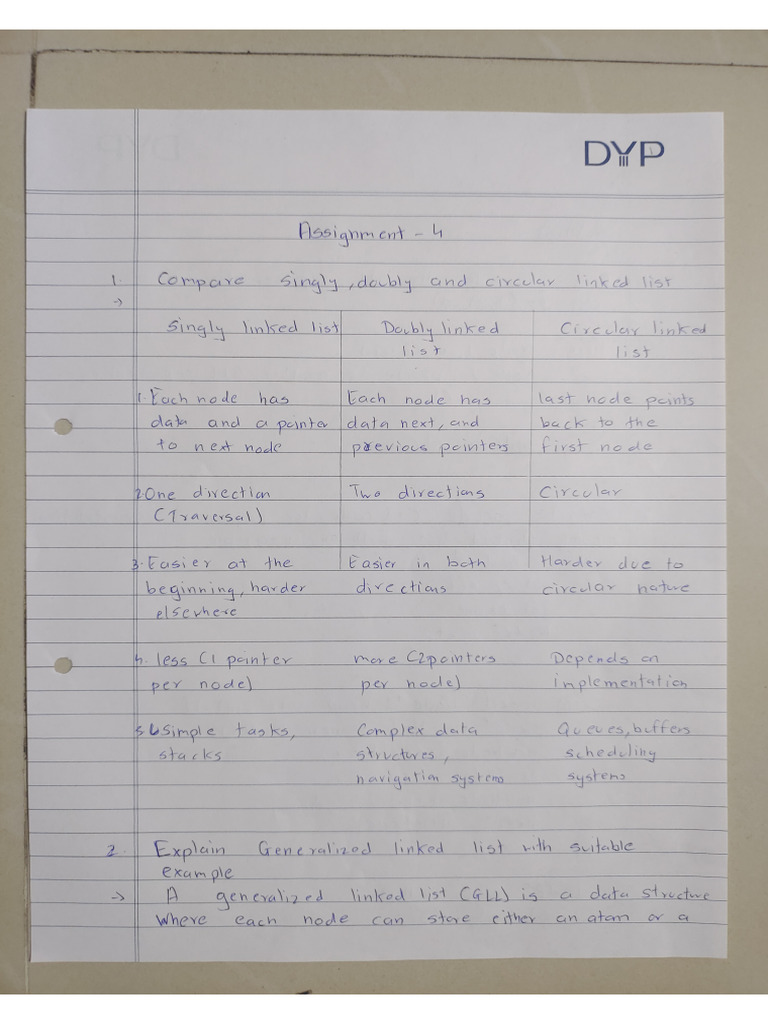 DYP
Assignment - 4
1. Compare singly, doubly and circular linked list
→
Singly linked list Doubly linked Circular linked
list list
1. Each node has Each node has last node points
data and a pointer data next, and back to the
to next node previous pointers first node
2. One direction Two directions Circular
(Traversal)
3. Easier at the Easier in both Harder due to
beginning, harder directions circular nature
elsewhere
4. less C1 pointer more C2 pointers Depends on
per node) per node) implementation
5. Simple tasks, Complex data Queues, buffers
stacks structures, scheduling
navigation systems systems
2. Explain Generalized linked list with suitable
example
→ A generalized linked list (GLL) is a data structure
where each node can store either an atom or a